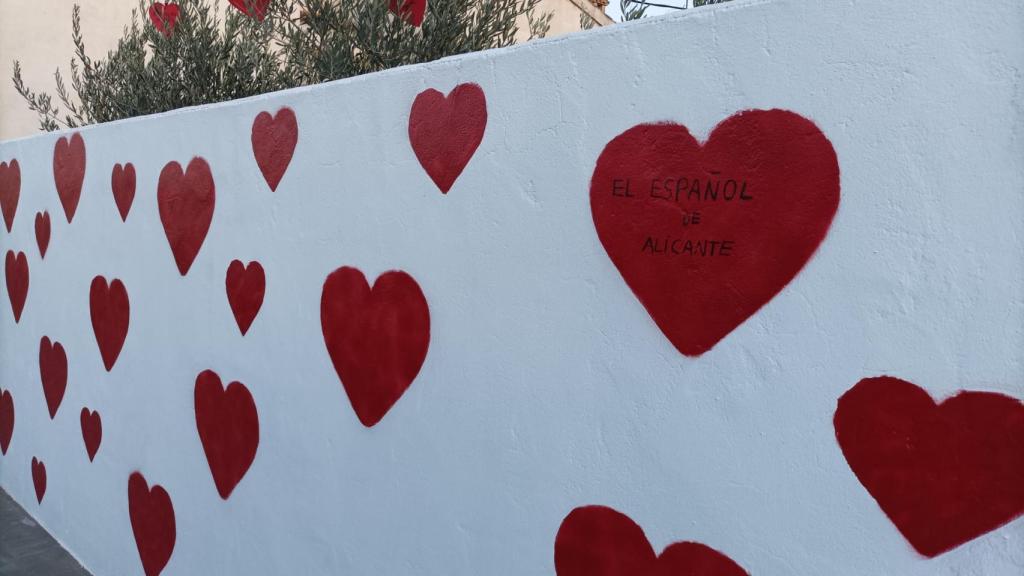 EL ESPAÑOL
DE
ALICANTE